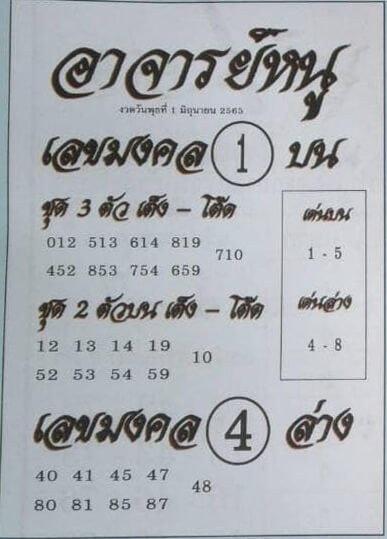 อาจารย์หนู
งวดวันพุธที่ 1 มิถุนายน 2565
เลขมงคล 1 บน
ชุด 3 ตัว เต็ง - โต๊ด
012 513 614 819
710
452 853 754 659
เด่นบน
1 - 5
ชุด 2 ตัวบน เต็ง - โต๊ด
12 13 14 19
10
52 53 54 59
เด่นล่าง
4 - 8
เลขมงคล 4 ล่าง
40 41 45 47
48
80 81 85 87